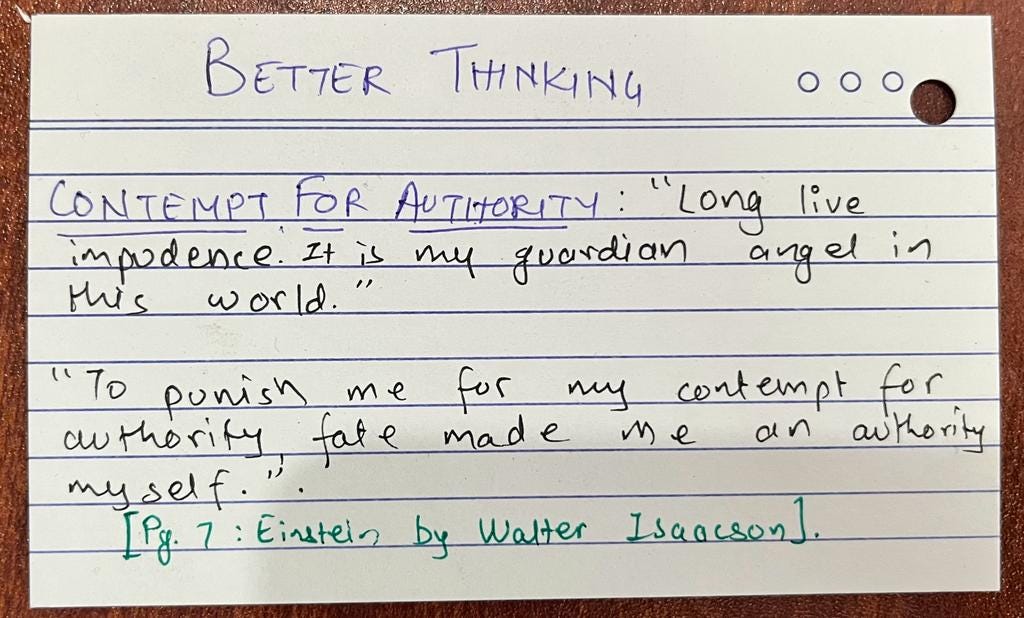 BETTER THINKING ○ ○ ○
CONTEMPT FOR AUTHORITY : "Long live
impudence. It is my guardian angel in
this world."
"To punish me for my contempt for
authority, fate made me an authority
myself.".
[Pg. 7 : Einstein by Walter Isaacson].